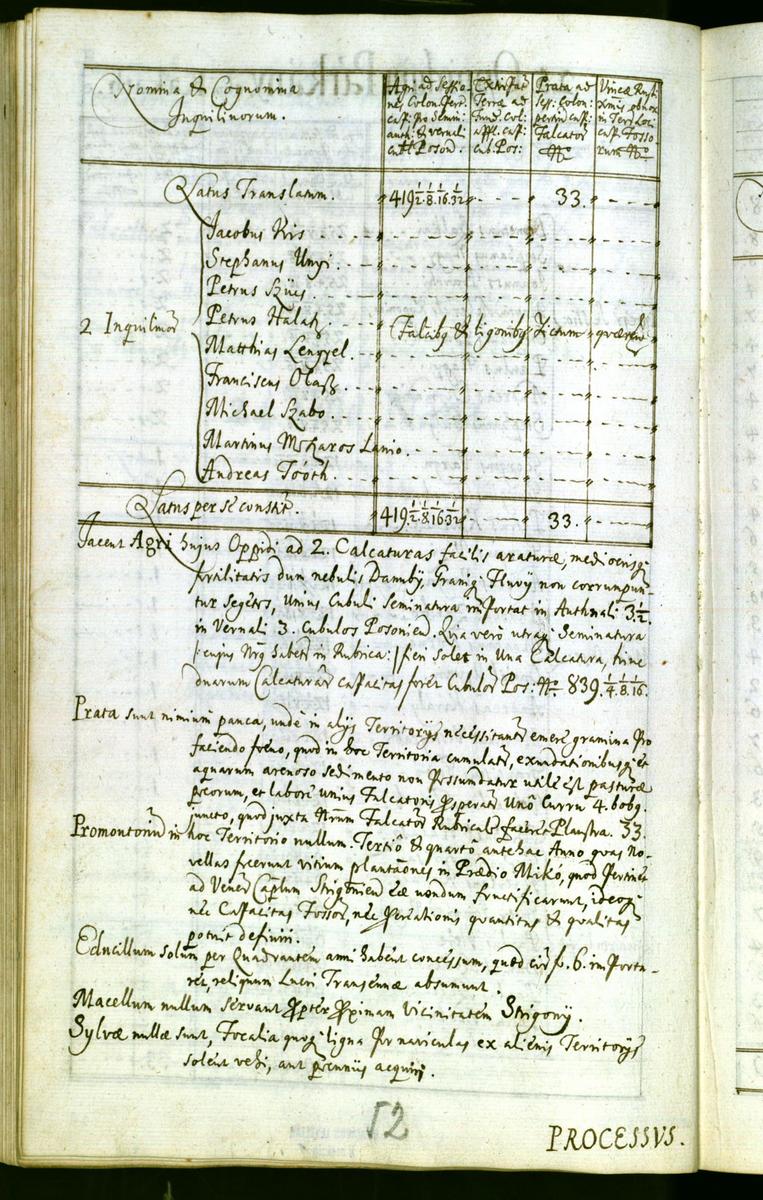 Nomina & Cognomina
Inquilinorum.
Agri ad Sessio-
nes Colon: Pert.
Cap: pro Semin:
auth: & vernali
Cub: Poson:
Exstirpat.
Terræ ad
Fund. Col:
appl. cap:
cub. Pos:
Prata ad
Sess: Colon:
pertin: cap:
Falcator
Nro
Vineæ Rusti
in Terr: Loci
cap. Fosso-
rum Nro
Latus Translatum. 419 1/2. 1/8. 1/16. 1/32 33.
Jacobus Kis
Stephanus Unyi
Petrus Szücs
Petrus Halasz
2 Inquilinor Falcibq & ligonibq Victum quærunt
Matthias Lengyel
Franciscus Olasz
Michael Szabo
Martinus Mészaros Lanio
Andreas Tóóth
Latus per se constit. 419 1/2. 1/8. 1/16. 1/32 33.
Jacent Agri hujus Oppidi ad 2. Calcaturas facilis araturæ, mediocrisq;
fertilitatis dum nebulis Danubij, Graniq; Fluvij non corrumpun-
tur segetes, Unius Cubuli Seminatura importat in Authnali 3 1/2.
in Vernali 3. Cubulos Posonien. Quia verò utraq; Seminatura
/: cujus Nrus habetr in Rubrica :/ fieri solet in Una Calcatura, hinc
duarum Calcaturar capacitas foret Cubulor Pos: Nro 839. 1/4. 1/8. 1/16.
Prata sunt nimium pauca, unde in alijs Territorijs necessitantr emere gramina pro
faciendo foeno, quod in hoc Territorio cumulatr, exundationibusq; et
aquarum arenoso sedimento non pessundatur utile est pasturæ
pecorum, et labore unius Falcatoris præparatr Unô Curru 4. bobq.
juncto, quod juxta Nrum Falcator Rubricalr faceret Plaustra. 33.
Promontorium in hoc Territorio nullum. Tertiô & quartô antehac Anno quas No-
vellas fecerunt vitium plantaōnes in Prædio Mikó, quod pertinet
ad Vener Caplum Strigonien eæ nondum fructificarunt, ideoq;
nec Capacitas Fossor, nec procreationis quantitas & qualitas
potuit definiri.
Educillum solum per Quadrantem anni habent concessum, quod cir f. 6. importa-
ret, reliquum Lucri Transennæ absumunt.
Macellum nullum servant propter proximam Vicinitatem Strigonij.
Sylvæ nullæ sunt, Focalia quoq; ligna per naviculas ex alienis Territorijs
solent vehi, aut pecuniis acquiri.
52
PROCESSUS.